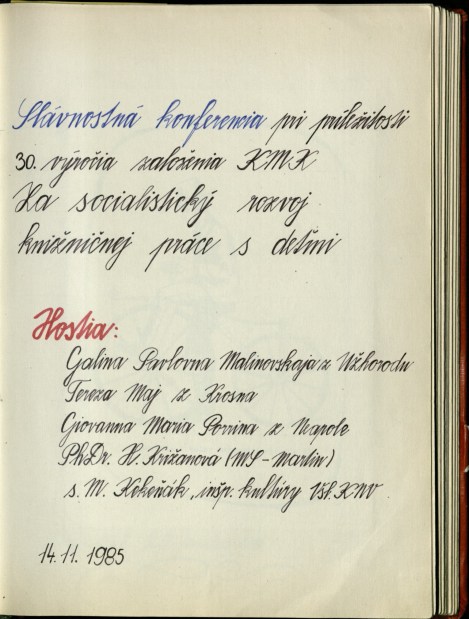 Slávnostná konferencia pri príležitosti
30. výročia založenia KMK
Za socialistický rozvoj
knižničnej práce s deťmi
Hostia:
Galina Pavlovna Malinovskaja z Užhorodu
Tereza Maj z Krosna
Giovanna Maria Porrina z Napole
PhDr. H. Križanová (MS - Martin)
s. M. Kekeňák, inšp. kultúry Vsl. KNV
14. 11. 1985